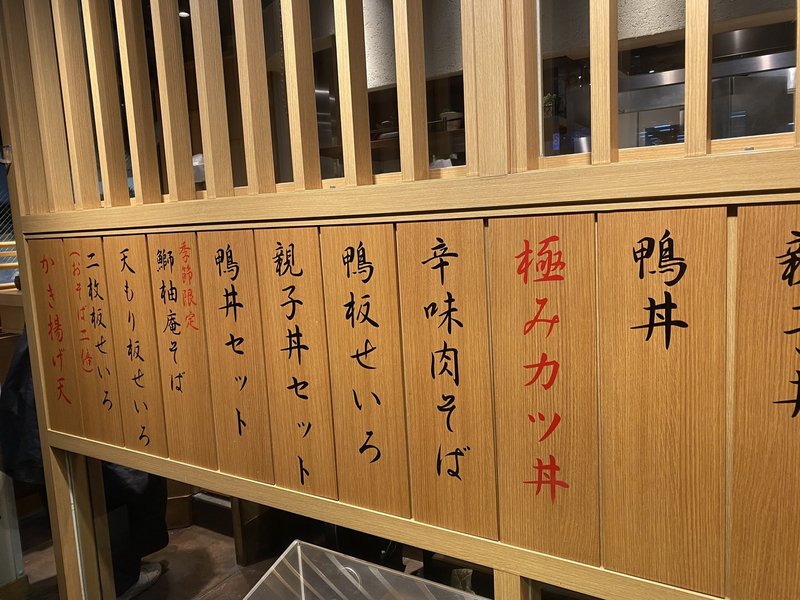 親子丼
鴨丼
極みカツ丼
辛味肉そば
鴨板せいろ
親子丼セット
鴨丼セット
季節限定
鰤柚庵そば
天もり板せいろ
二枚板せいろ
(おそば二倍)
かき揚げ天